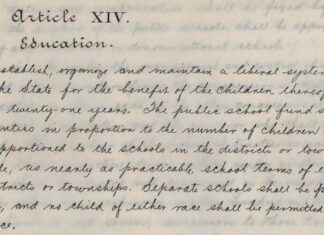 Article XIV.
Education.
establish, organize and maintain a liberal system
the State for the benefit of the children thereof
twenty-one years. The public school fund s
nties in proportion to the number of children
apportioned to the schools in the districts or tow
de, as nearly as practicable, school terms of e
tricts or townships. Separate schools shall be p
, and no child of either race shall be permitted
ce.